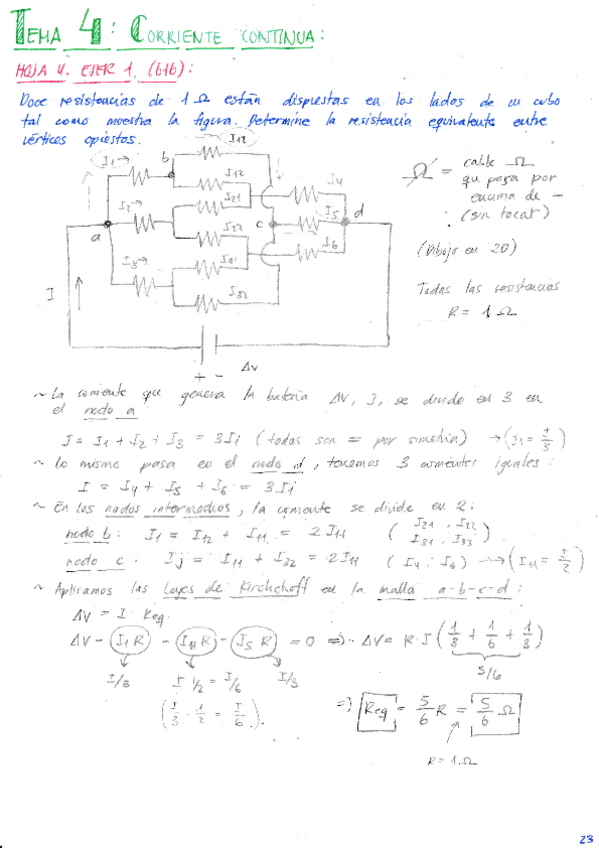 TEMA 4: CORRIENTE CONTINUA:
HOJA 4. EJER 1. (b1b):
Doce resistencias de 1 Ω están dispuestas en los lados de un cubo
tal como muestra la figura. Determine la resistencia equivalente entre
vértices opuestos.
I₁→ b I₁₁ I₁₂ I₂₁ I₄
I₂→ I₂₂ c I₅ d
a I₃→ I₃₁ I₆
I₃₂
I
+ - ΔV
= cable Ω
que pasa por
encima de -
(sin tocar)
(Dibujo en 2D)
Todas las resistencias
R = 1 Ω
~ La corriente que genera la batería ΔV, I, se divide en 3 en
el nodo a
I = I₁ + I₂ + I₃ = 3Ii (todas son = por simetría) → (I₁ = I/3)
~ Lo mismo pasa en el nodo d, tenemos 3 corrientes iguales:
I = I₄ + I₅ + I₆ = 3Ij
~ En los nodos intermedios, la corriente se divide en 2:
nodo b: I₁ = I₁₂ + I₁₁ = 2I₁₁ (I₂₁, I₂₂ I₃₁, I₃₃)
nodo c: Ij = I₁₁ + I₃₂ = 2I₁₁ (I₄, I₆) → (I₁₁ = I/2)
~ Aplicamos las Leyes de Kirchhoff en la malla a-b-c-d:
ΔV = I · Req.
ΔV - I₁R - I₁₁R - I₅R = 0 => ΔV = R·I (1/3 + 1/6 + 1/3)
I/3 I 1/2 = I/6 I/3 5/6
(I/3 · 1/2 = I/6).
=> Req = 5/6 R = 5/6 Ω
R = 1 Ω
23